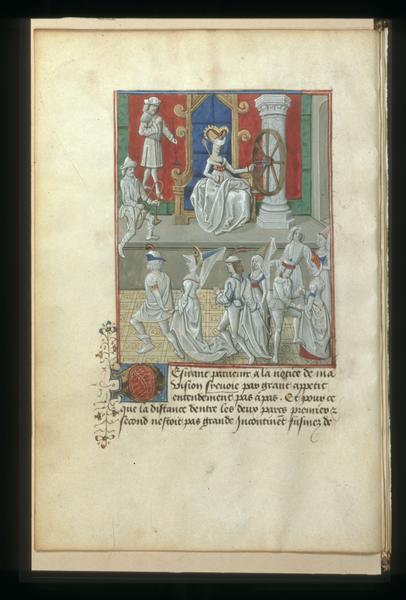 Desirant parvenir a la notice de ma
vision s'envoie par grant appetit
entendement pas a pas. Et pour ce
que la distance dentre les deux parcs premier z
second nestoit pas grande Incontinent fusmez de